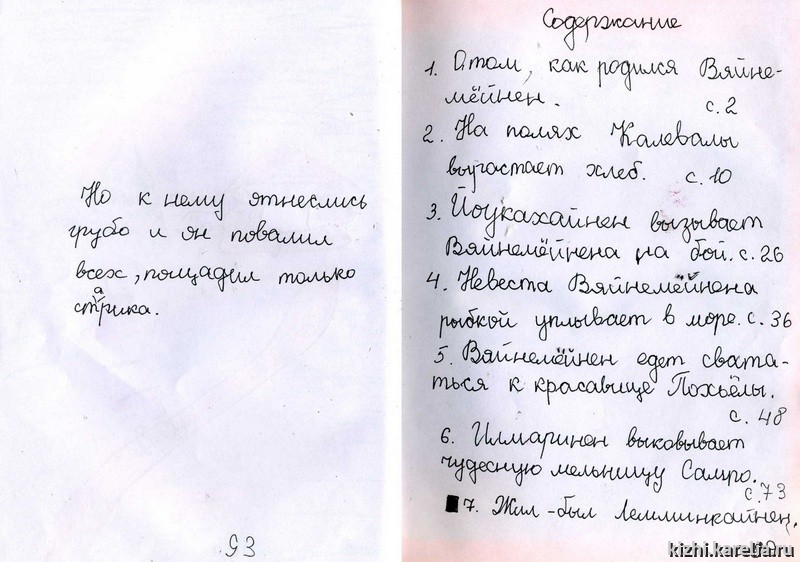 Но к нему ятнеслись
грубо и он повалил
всех, пощадил только
старика.
93
Содержание
1. О том, как родился Вяйне-
мёйнен. с. 2
2. На полях Калевалы
вырастает хлеб. с. 10
3. Йоукахайнен вызывает
Вяйнемёйнена на бой. с. 26
4. Невеста Вяйнемёйнена
рыбкой уплывает в море. с. 36
5. Вяйнемёйнен едет свата-
ться к красавице Похъёлы.
с. 48
6. Илмаринен выковывает
чудесную мельницу Сампо.
с. 73
7. Жил-был Лемминкайнен.
kizhi.karelia.ru